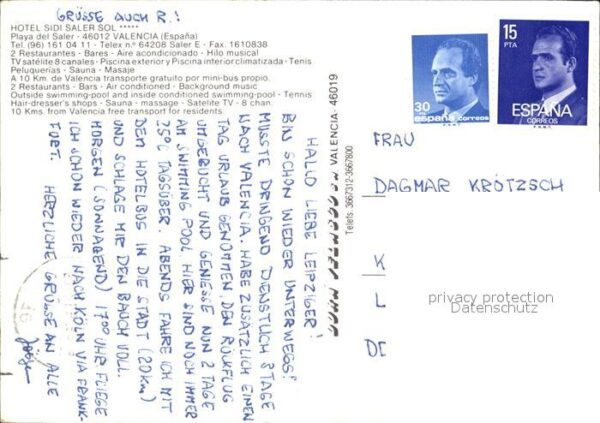 GRÜSSE AUCH R.!
HOTEL SIDI SALER SOL *****
Playa del Saler - 46012 VALENCIA (España)
Tel. (96) 161 04 11 - Telex n.º 64208 Saler E - Fax. 1610838
2 Restaurantes - Bares - Aire acondicionado - Hilo musical
TV satélite 8 canales - Piscina exterior y Piscina interior climatizada - Tenis
Peluquerías - Sauna - Masaje
A 10 Km. de Valencia transporte gratuito por mini-bus propio.
2 Restaurants - Bars - Air conditioned - Background music
Outside swimming-pool and inside conditioned swimming-pool - Tennis
Hair-dresser's shops - Sauna - massage - Satelite TV - 8 chan.
10 Kms. from Valencia free transport for residents.
HALLO LIEBE LEIPZIGER!
BIN SCHON WIEDER UNTERWEGS!
MUSSTE DRINGEND DIENSTLICH 8 TAGE
NACH VALENCIA. HABE ZUSÄTZLICH EINEN
TAG URLAUB GENOMMEN, DEN RÜCKFLUG
UMGEBUCHT UND GENIESSE NUN 2 TAGE
AM SWIMMING POOL. HIER SIND NOCH IMMER
25°C TAGSÜBER. ABENDS FAHRE ICH MIT
DEM HOTELBUS IN DIE STADT (20km)
UND SCHLAGE MIR DEN BAUCH VOLL.
MORGEN (SONNABEND) 17⁰⁰ UHR FLIEGE
ICH SCHON WIEDER NACH KÖLN VIA FRANK-
FURT. HERZLICHE GRÜSSE AN ALLE
VALENCIA - 46019
Telefs. 3667312-3667800
30
PTA
españa
CORREOS
15
PTA
ESPAÑA
CORREOS
F.N.M.T.
FRAU
DAGMAR KRÖTZSCH
K
L
DE
privacy protection
Datenschutz